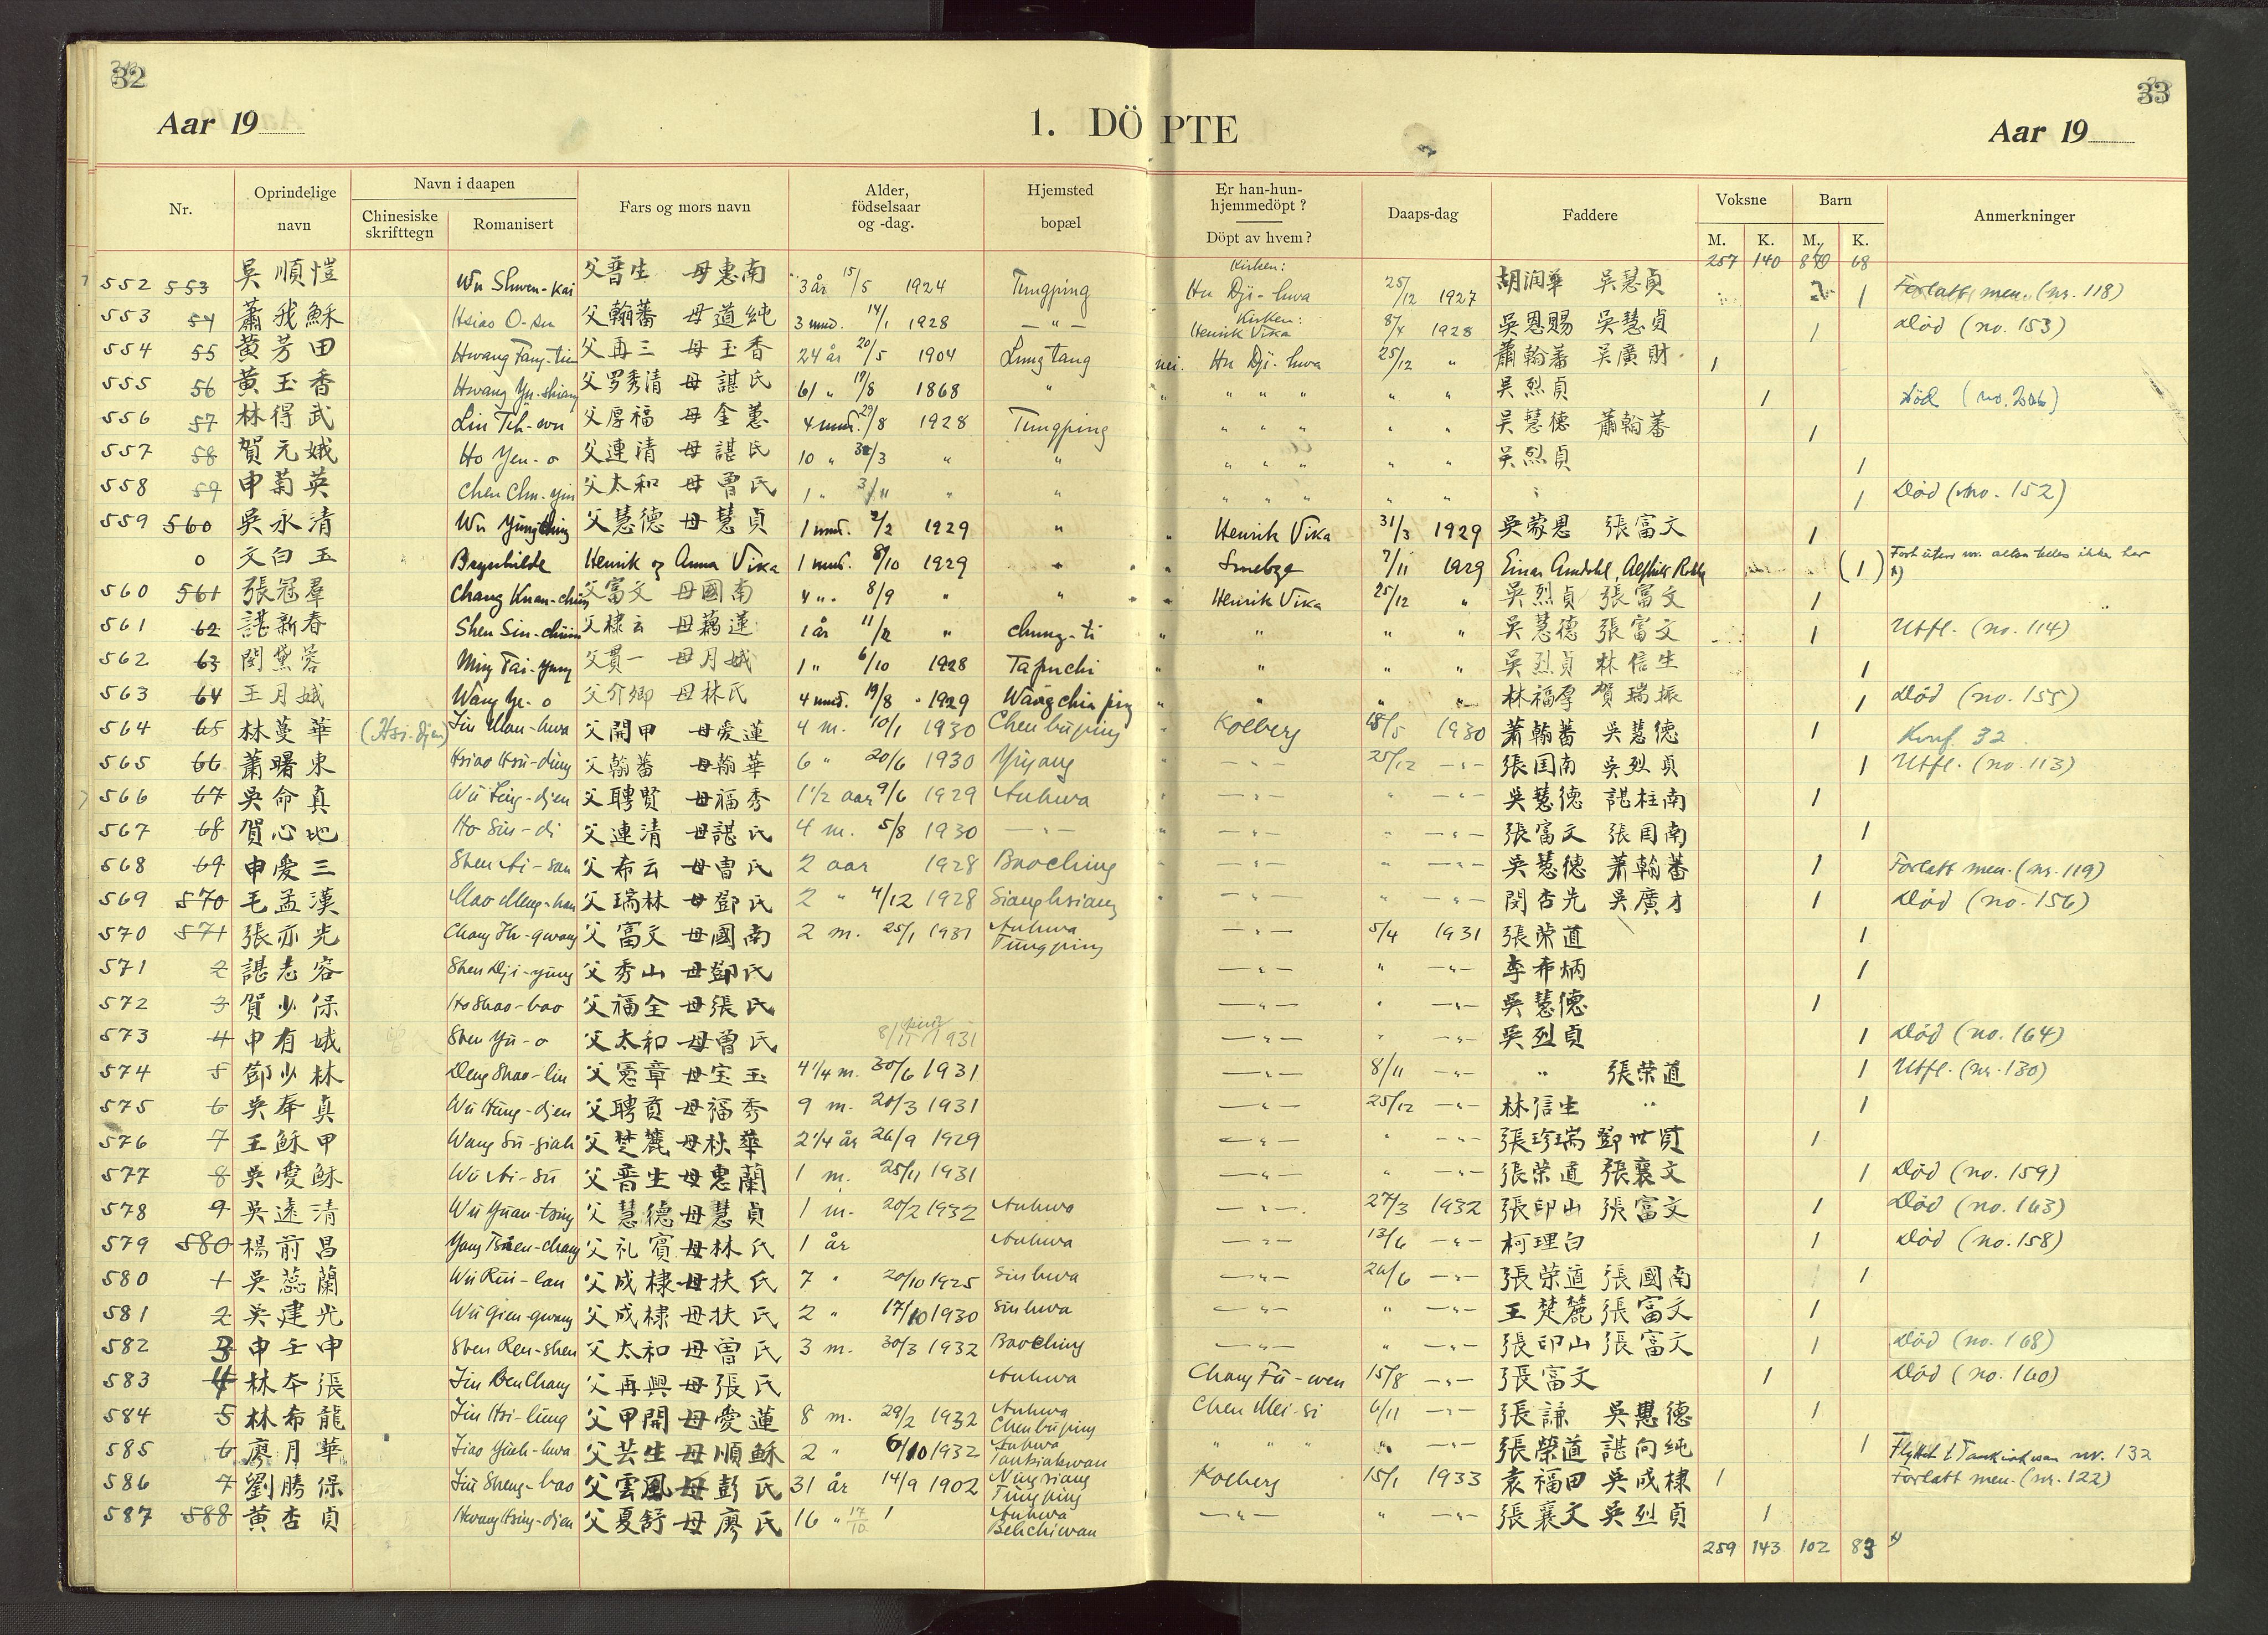 32
33
Aar 19
1. DÖPTE
Aar 19
Nr.
Oprindelige navn
Navn i daapen
Chinesiske skrifttegn
Romanisert
Fars og mors navn
Alder, födselsaar og -dag.
Hjemsted bopæl
Er han-hun-hjemmedöpt?
Döpt av hvem?
Daaps-dag
Faddere
Voksne
M. K.
Barn
M. K.
Anmerkninger
257 140 68
552 553 吳順愷 Wu Shwen-kai 父晋生 母惠南 3 år 15/5 1924 Tungping Kirken: Hu Dji-hwa 25/12 1927 胡润華 吳慧貞 1 Forlatt men. (nr. 118)
553 54 蕭我穌 Hsiao O-su 父翰蕃 母道純 3 mnd. 14/1 1928 — " — Kirken: Henrik Vika 8/4 1928 吳恩賜 吳慧貞 1 Död (no. 153)
554 55 黄芳田 Hwang Fang-tien 父再三 母玉香 24 år 20/5 1904 Lungtang nei. Hu Dji-hwa 25/12 " 蕭翰蕃 吳廣財 1
555 56 黄玉香 Hwang Yu-shiang 父罗秀清 母諶氏 61 " 19/8 1868 " " " " " " " 吳烈貞 1 Död (no. 206)
556 57 林得武 Lin Teh-wu 父厚福 母全蕙 4 mnd. 29/8 1928 Tungping " " " " " 吳慧德 蕭翰蕃 1
557 58 賀元娥 Ho Yen-o 父連清 母諶氏 10 " /3 " " " " " " " 吳烈貞 1
558 59 申菊英 Chen Chu-yin 父太和 母曾氏 1 " 3/11 " " " " " " " " 1 Död (no. 152)
559 560 吳永清 Wu Yung-ching 父慧德 母慧貞 1 mnd. 2/2 1929 " " Henrik Vika 31/3 1929 吳蒙恩 張富文 1
0 文白玉 Brynhilde Henrik og Anna Vika 1 mnd. 8/10 1929 " " Smebye 7/11 1929 Einar Amdahl, (1)
560 561 張冠羣 Chang Kuan-chün 父富文 母國南 4 " 8/9 " " " Henrik Vika 25/12 " 吳烈貞 張富文 1
561 62 諶新春 Shen Sin-chün 父棣云 母藕蓮 1 år 11/12 " Chung-ti " " " " 吳慧德 張富文 1 Utfl. (no. 114)
562 63 閔黛蓉 Ming Tai-yung 父貫一 母月娥 1 " 6/10 1928 Tapuchi " " " " 吳烈貞 林信生 1
563 64 王月娥 Wang Ye-o 父介卿 母林氏 4 mnd. 19/8 1929 Wangchia ping " " " " 林福厚 賀瑞振 1 Död (no. 155)
564 65 林蔓華 (Hsi-djen) Lin Man-hwa 父開甲 母愛蓮 4 m. 10/1 1930 Chenbuping " Kolberg 18/5 1930 蕭翰蕃 吳慧德 1 Konf. 32
565 66 蕭曙東 Hsiao Hsü-dung 父翰蕃 母翰華 6 " 20/6 1930 Yiyang " — " — 25/12 — " — 張囯南 吳烈貞 1 Utfl. (no. 113)
566 67 吳命真 Wu Ling-djen 父聘賢 母福秀 1 1/2 aar 9/6 1929 Anhwa " — " — " — " — 吳慧德 諶柱南 1
567 68 賀心地 Ho Sin-di 父連清 母諶氏 4 m. 5/8 1930 — " — " — " — " — " — 張富文 張囯南 1
568 69 申愛三 Shen Ai-san 父希云 母曾氏 2 aar 1928 Baoching " — " — " — " — 吳慧德 蕭翰蕃 1 Forlatt men. (nr. 119)
569 570 毛孟漢 Mao Meng-han 父瑞林 母鄧氏 2 " 4/12 1928 Sianghsiang " — " — " — " — 閔杏先 吳廣才 1 Död (no. 156)
570 571 張亦光 Chang Ih-gwang 父富文 母國南 2 m. 25/1 1931 Anhwa Tungping — " — 5/4 1931 張荣道 1
571 2 諶志容 Shen Dji-yung 父秀山 母鄧氏 — " — " — " — 李希炳 1
572 3 賀少保 Ho Shao-bao 父福全 母張氏 — " — " — " — 吳慧德 1
573 4 申有娥 Shen Yu-o 父太和 母曾氏 1931 — " — " — " — 吳烈貞 1 Död (no. 164)
574 5 鄧少林 Deng Shao-lin 父憲章 母宝玉 4 1/4 m. 30/6 1931 — " — 8/11 — " — " 張荣道 1 Utfl. (nr. 130)
575 6 吳奉真 Wu Hung-djen 父聘賢 母福秀 9 m. 20/3 1931 — " — 25/12 — " — 林信生 " 1
576 7 王穌甲 Wang Su-giah 父楚麓 母秋華 2 1/4 år 26/9 1929 — " — " — " — 張珍瑞 鄧世贤 1
577 8 吳愛穌 Wu Ai-su 父晋生 母惠蘭 1 m. 25/11 1931 — " — " — " — 張荣道 張襄文 1 Död (no. 159)
578 9 吳遠清 Wu Yüan-tsing 父慧德 母慧貞 1 m. 20/2 1932 Anhwa — " — 27/3 1932 張印山 張富文 1 Död (no. 163)
579 580 楊前昌 Yang Tsien-chang 父礼賓 母林氏 1 år Anhwa — " — 13/6 — " — 柯理白 1 Död (no. 158)
580 1 吳蕊蘭 Wu Rui-lan 父成棣 母扶氏 7 " 20/10 1925 Sinhwa — " — 26/6 — " — 張荣道 張國南 1
581 2 吳建光 Wu Gien-gwang 父成棣 母扶氏 2 " 17/10 1930 Sinhwa — " — " — " — 王楚麓 張富文 1
582 3 申壬申 Shen Ren-shen 父太和 母曾氏 3 m. 30/3 1932 Baoching — " — " — " — 張印山 張富文 1 Död (no. 168)
583 4 林本張 Lin Ben Chang 父再興 母張氏 Anhwa Chang Fu-wen 15/8 — " — 張富文 1 Död (no. 160)
584 5 林希龍 Lin Hsi-lung 父甲開 母愛蓮 8 m. 29/2 1932 Anhwa Chenbuping Chen Mei-si 6/11 — " — 張謙 吳慧德 1
585 6 廖月華 Liao Yüeh-hwa 父芸生 母順穌 2 " 6/10 1932 Anhwa Tankiakwan " " " " — " — 張榮道 諶向純 1 Flyttet t. Tankiakwan nr. 132
586 7 劉勝保 Liu Sheng-bao 父雲鳳 母彭氏 31 år 14/9 1902 Ningsiang Tungping Kolberg 15/1 1933 袁福田 吳成棣 1 Forlatt men. (nr. 122)
587 588 黄杏貞 Hwang Hsing-djen 父夏舒 母廖氏 16 " 17/10 Anhwa Behchiwan — " — " — " — 張襄文 吳烈貞 1
259 143 102 83 x)